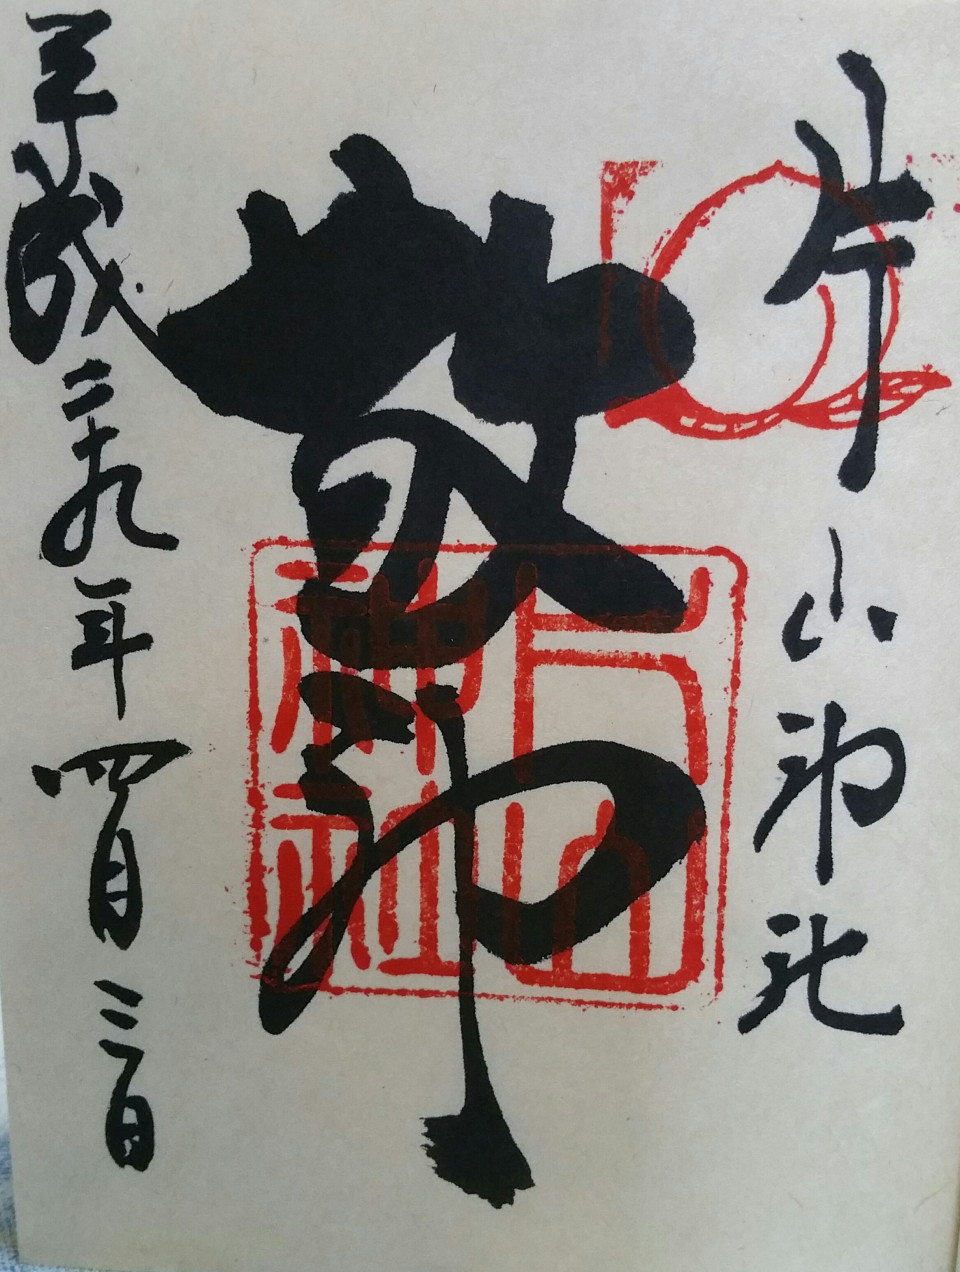 片山神社
敬神
片山神社
平成二十九年四月三日